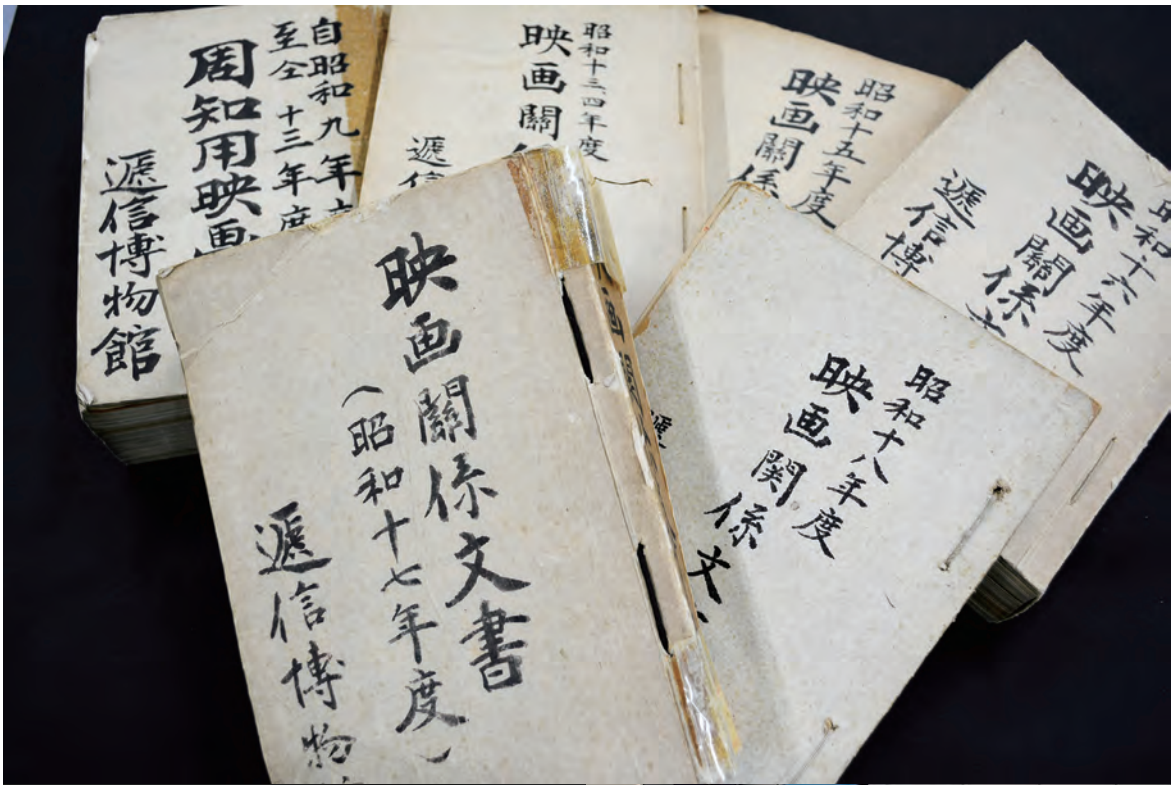 自昭和九年
至仝十三年度
周知用映画
遞信博物館
昭和十三、四年度
映画關
遞信
昭和十五年度
映画關係
昭和十六年度
映画關係文
遞信博
映画關係文書
（昭和十七年度）
遞信博物
昭和十八年度
映画関係文
遞